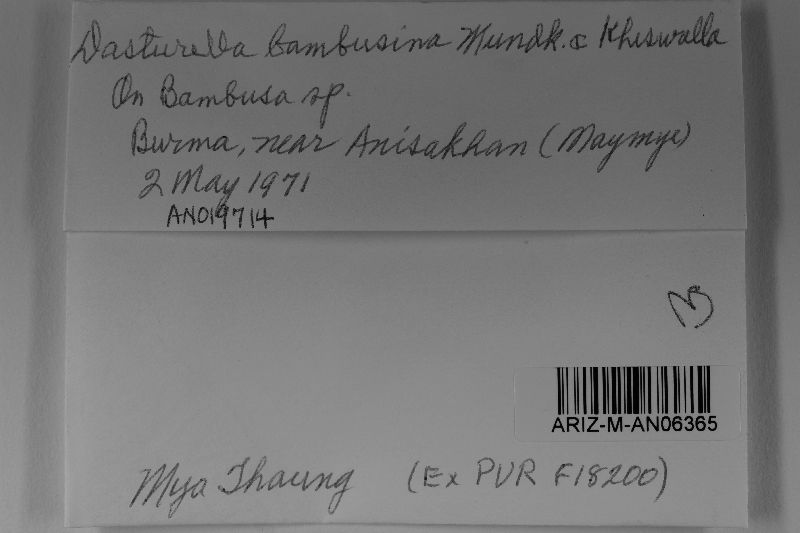 Dasturella bambusina Mundk. & Kheswalla
On Bambusa sp.
Burma, near Anisakhan (Maymyo)
2 May 1971
AN019714
ARIZ-M-AN06365
Mya Thaung (Ex PUR F18200)